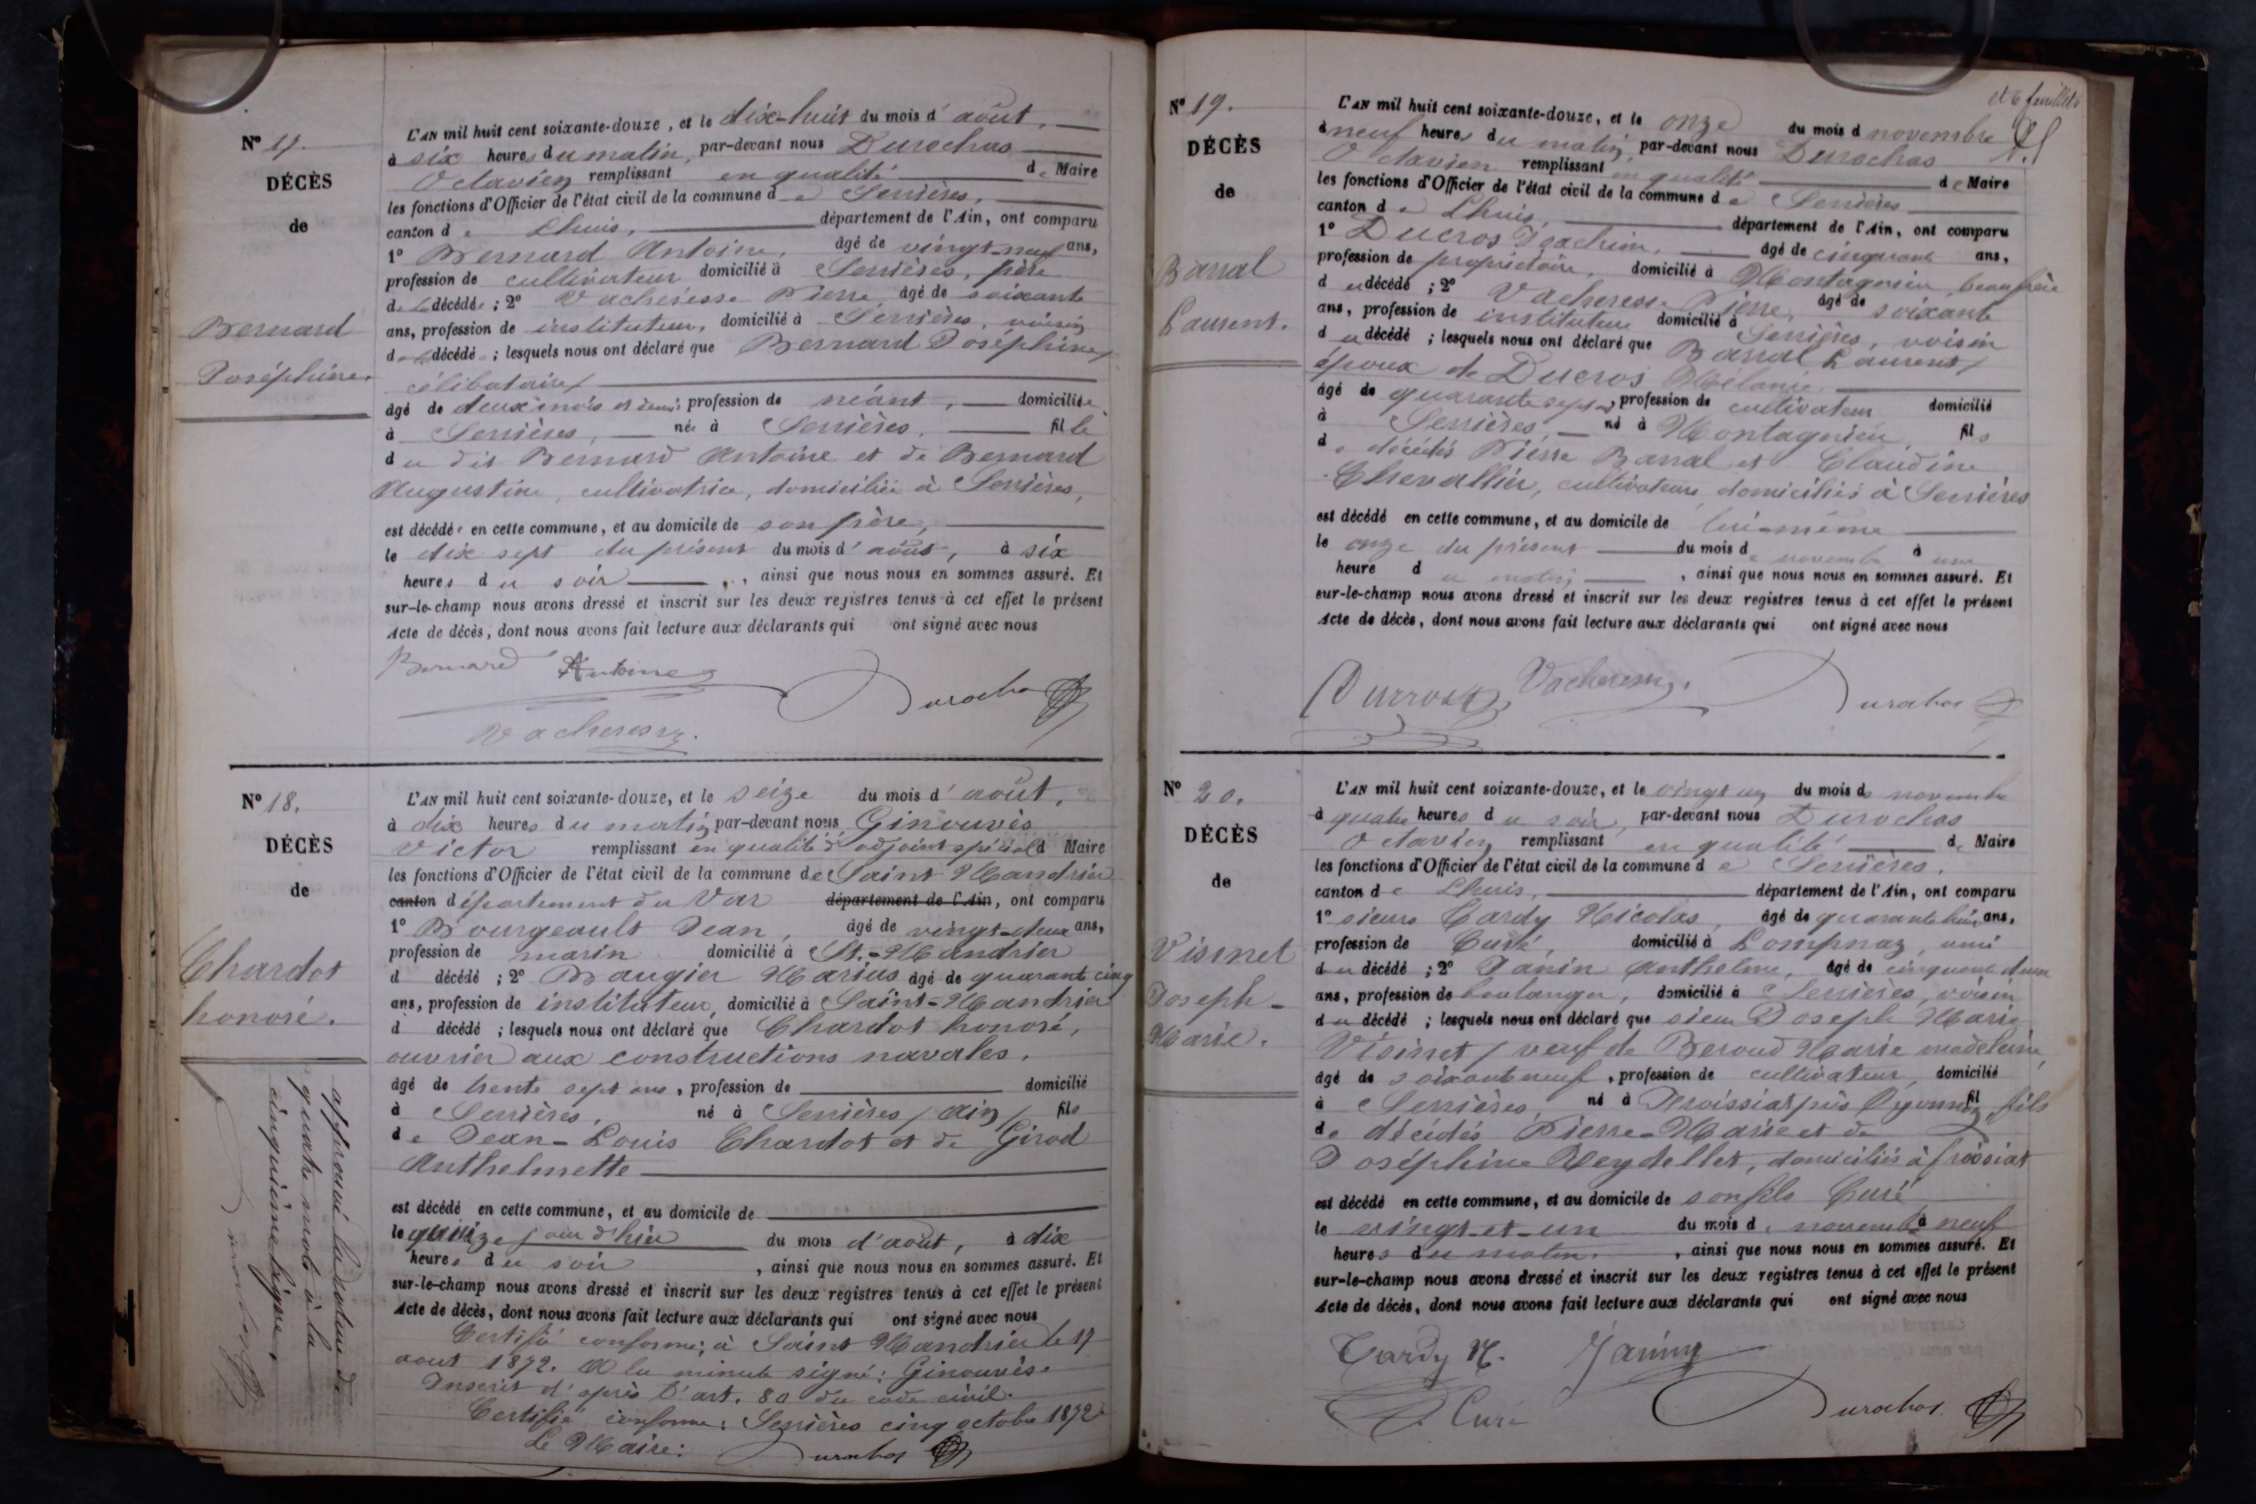 Nº 17.
DÉCÈS
de
Bernard
Joséphine.
L'AN mil huit cent soixante-douze, et le dix-huit du mois d'août,
à six heures du matin, par-devant nous Durochas
Octavien remplissant en qualité de Maire
les fonctions d'Officier de l'état civil de la commune de Serrières,
canton de Lhuis, département de l'Ain, ont comparu
1º Bernard Antoine, âgé de vingt-neuf ans,
profession de cultivateur domicilié à Serrières, père
de la décédée ; 2º Vacheresse Pierre, âgé de soixante
ans, profession de instituteur, domicilié à Serrières, voisin
de la décédée ; lesquels nous ont déclaré que Bernard Joséphine,
célibataire,
âgé de deux mois et demi profession de néant, domiciliée
à Serrières, née à Serrières, fille
du dit Bernard Antoine et de Bernard
Augustine, cultivatrice, domiciliée à Serrières,
est décédée en cette commune, et au domicile de son père,
le dix sept du présent du mois d'août, à six
heures du soir, ainsi que nous nous en sommes assuré. Et
sur-le-champ nous avons dressé et inscrit sur les deux registres tenus à cet effet le présent
Acte de décès, dont nous avons fait lecture aux déclarants qui ont signé avec nous
Bernard Antoine
Durochas
Vacheresse.
Nº 18.
DÉCÈS
de
Chardot
honoré.
approuvé la rature de
quatre mots à la
cinquième ligne.
Durochas
L'AN mil huit cent soixante-douze, et le seize du mois d'août,
à dix heures du matin par-devant nous Ginouvès
Victor remplissant en qualité d'adjoint spécial d Maire
les fonctions d'Officier de l'état civil de la commune de Saint-Mandrier
canton département du Var département de l'Ain, ont comparu
1º Bourgeault Jean, âgé de vingt-deux ans,
profession de marin domicilié à St.-Mandrier
d décédé ; 2º Baugier Marius âgé de quarante cinq
ans, profession de instituteur, domicilié à Saint-Mandrier
d décédé ; lesquels nous ont déclaré que Chardot honoré,
ouvrier aux constructions navales.
âgé de trente sept ans, profession de domicilié
à Serrières, né à Serrières (ain) fils
de Jean-Louis Chardot et de Girod
Anthelmette
est décédé en cette commune, et au domicile de
le quinze jour d'hier du mois d'août, à dix
heures du soir, ainsi que nous nous en sommes assuré. Et
sur-le-champ nous avons dressé et inscrit sur les deux registres tenus à cet effet le présent
Acte de décès, dont nous avons fait lecture aux déclarants qui ont signé avec nous
Certifié conforme; à Saint Mandrier le 17
aout 1872. A la minute signé: Ginouvès.
Inscrit d'après l'art. 80 du code civil.
Certifié conforme: Serrières cinq octobre 1872
Le Maire: Durochas
et 6 feuillets
Nº 19.
DÉCÈS
de
Barral
Laurent.
L'AN mil huit cent soixante-douze, et le onze du mois d novembre
à neuf heures du matin, par-devant nous Durochas
Octavien remplissant en qualité de Maire
les fonctions d'Officier de l'état civil de la commune de Serrières
canton de Lhuis, département de l'Ain, ont comparu
1º Ducros Joachim, âgé de cinquante ans,
profession de propriétaire, domicilié à Montagnieu, beau frère
du décédé ; 2º Vacheresse Pierre, âgé de soixante
ans, profession de instituteur domicilié à Serrières, voisin
du décédé ; lesquels nous ont déclaré que Barral Laurent,
époux de Ducros Mélanie
âgé de quarante sept ans, profession de cultivateur domicilié
à Serrières, né à Montagnieu, fils
de décédés Pierre Barral et Claudine
Chevallier, cultivateurs domiciliés à Serrières
est décédé en cette commune, et au domicile de lui-même
le onze du présent du mois de novembre à une
heure du matin, ainsi que nous nous en sommes assuré. Et
sur-le-champ nous avons dressé et inscrit sur les deux registres tenus à cet effet le présent
Acte de décès, dont nous avons fait lecture aux déclarants qui ont signé avec nous
Ducros Vacheresse.
Durochas
Nº 20.
DÉCÈS
de
Visinet
Joseph-
Marie.
L'AN mil huit cent soixante-douze, et le vingt un du mois de novembre
à quatre heures du soir, par-devant nous Durochas
Octavien remplissant en qualité de Maire
les fonctions d'Officier de l'état civil de la commune de Serrières,
canton de Lhuis, département de l'Ain, ont comparu
1º sieurs Cardy Nicolas, âgé de quarante huit ans,
profession de Curé, domicilié à Lompnaz, ami
du décédé ; 2º Janin Anthelme, âgé de cinquante deux
ans, profession de boulanger, domicilié à Serrières, voisin
du décédé ; lesquels nous ont déclaré que sieur Joseph Marie
Visinet, veuf de Beroud Marie madeleine,
âgé de soixante neuf, profession de cultivateur, domicilié
à Serrières, né à près Oyonnax fils
de décédés Pierre-Marie et de
Joséphine Reydellet, domiciliés à
est décédé en cette commune, et au domicile de son fils Curé
le vingt-et-un du mois de novembre à neuf
heures du matin, ainsi que nous nous en sommes assuré. Et
sur-le-champ nous avons dressé et inscrit sur les deux registres tenus à cet effet le présent
Acte de décès, dont nous avons fait lecture aux déclarants qui ont signé avec nous
Cardy N. Janin
Curé
Durochas